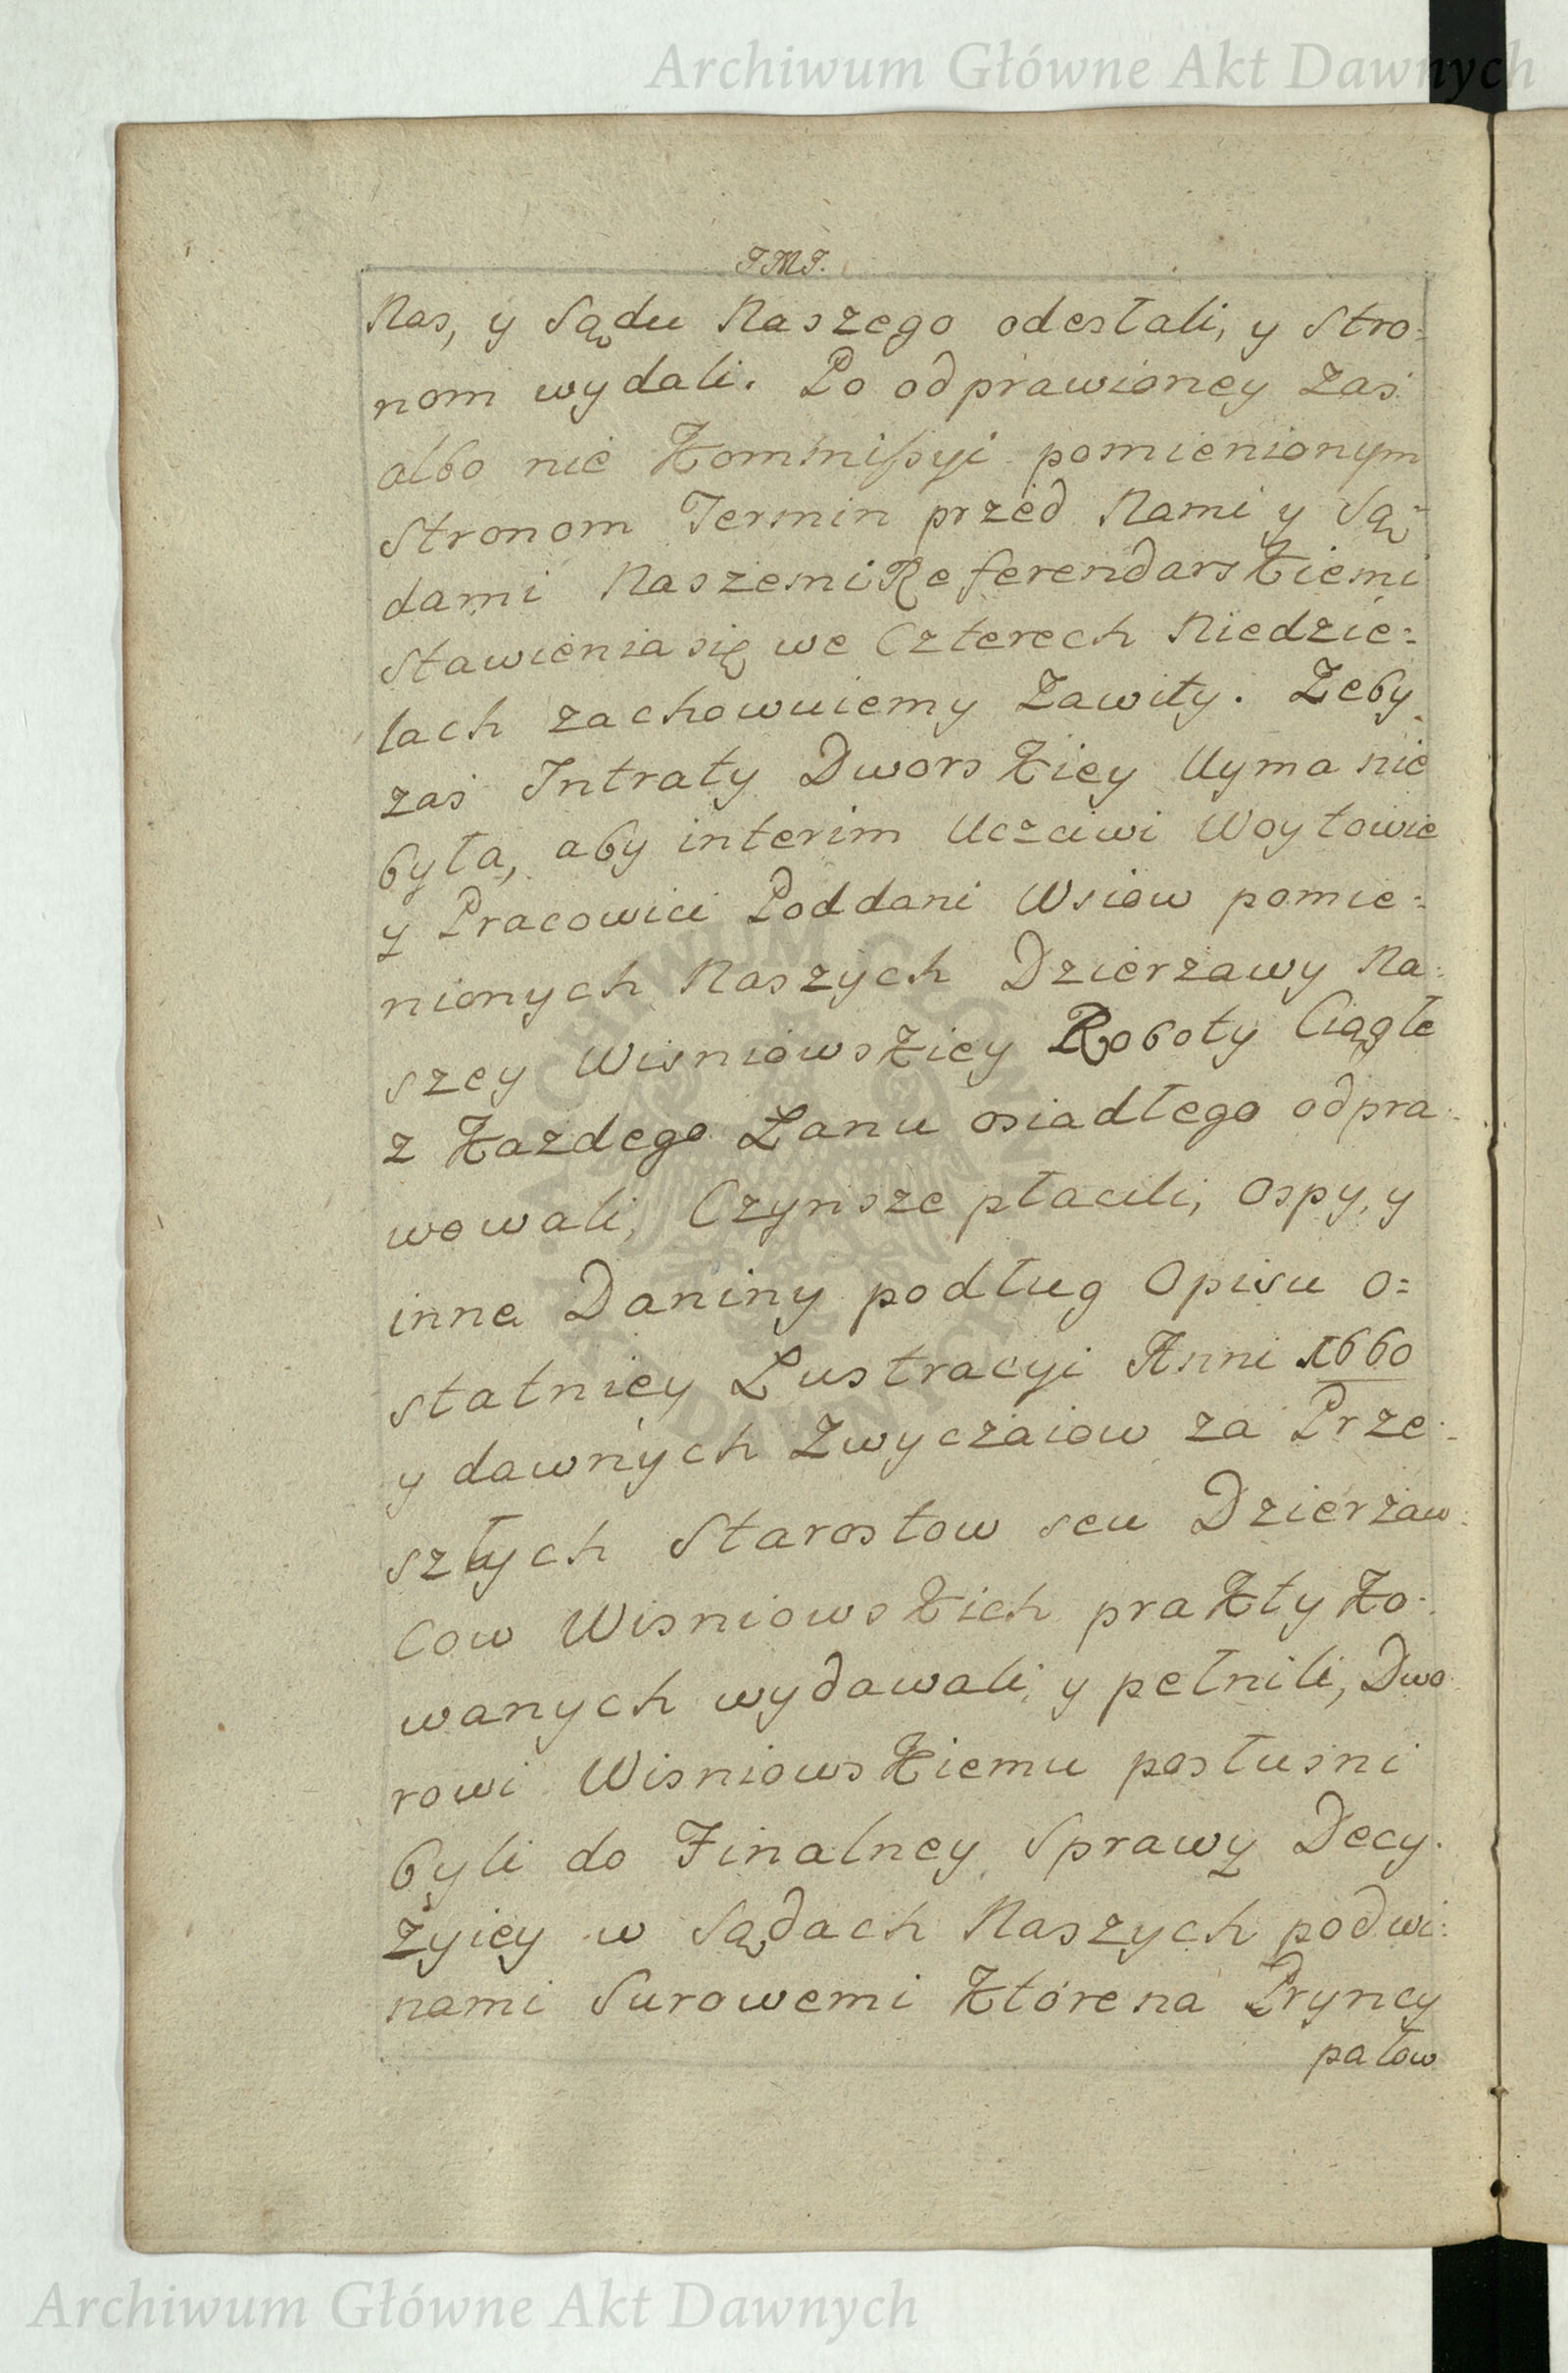 Archiwum Główne Akt Dawnych
J.M.J.
Nas, y Sądu Naszego odesłali, y Stro=
nom wydali. Po odprawioney Zaś
albo nie Kommissyi pomienionym
Stronom Termin przed Nami y Są=
dami Naszemi Referendarskiemi
Stawienia się we Czterech Niedzie=
lach zachowuiemy Zawity. Zeby
zaś Intraty Dworskiey Uyma nie
była, aby interim Uczciwi Woytowie
y Pracowici Poddani Wsiow pomie=
nionych Naszych Dzierzawy Na=
szey Wisniowskiey Roboty Ciągłe
z Kazdego Lanu osiadłego odpra=
wowali, Czynsze płacili, Ospy, y
inne Daniny podług Opisu o=
statniey Lustracyi Anni 1660
y dawnych Zwyczaiow za Prze=
szłych Starostow seu Dzierzaw=
cow Wisniowskich praktyko=
wanych wydawali y pełnili, Dwo=
rowi Wisniowskiemu posłusni
byli do Finalney Sprawy Decy=
zyiey w Sądach Naszych pod wi=
nami Surowemi które na Pryncy
pałow
ARCHIWUM GŁÓWNE AKT DAWNYCH
Archiwum Główne Akt Dawnych